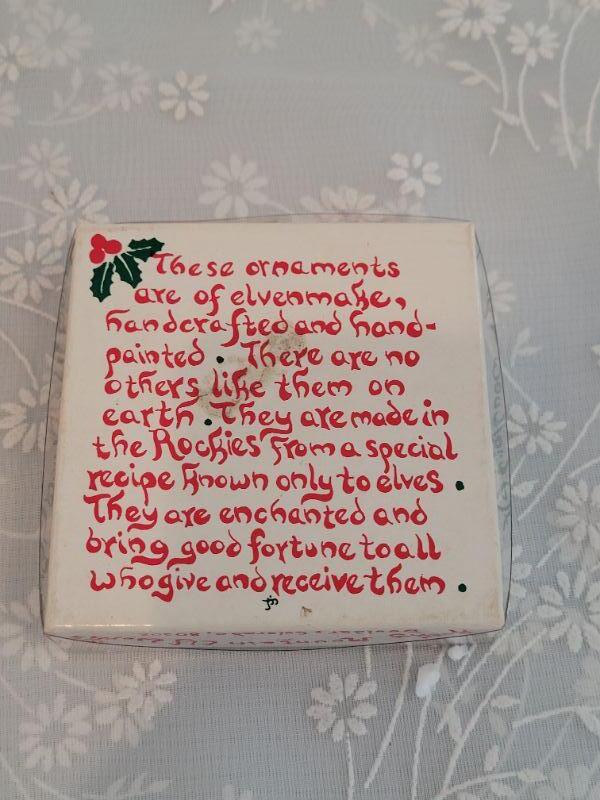 These ornaments
are of elvenmake,
handcrafted and hand-
painted. There are no
others like them on
earth. They are made in
the Rockies from a special
recipe known only to elves.
They are enchanted and
bring good fortune to all
who give and receive them.